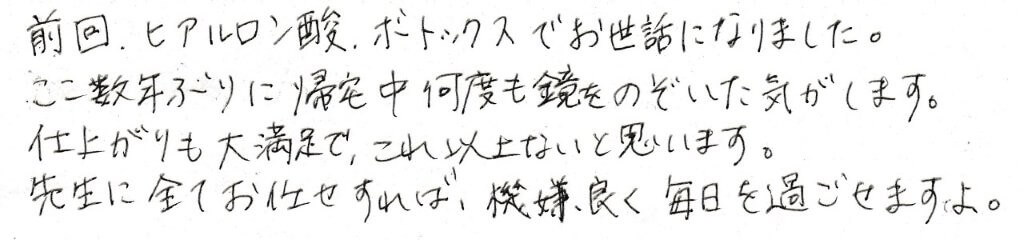 前回、ヒアルロン酸、ボトックスでお世話になりました。
ここ数年ぶりに帰宅中何度も鏡をのぞいた気がします。
仕上がりも大満足で、これ以上ないと思います。
先生に全てお任せすれば、機嫌良く毎日を過ごせますよ。